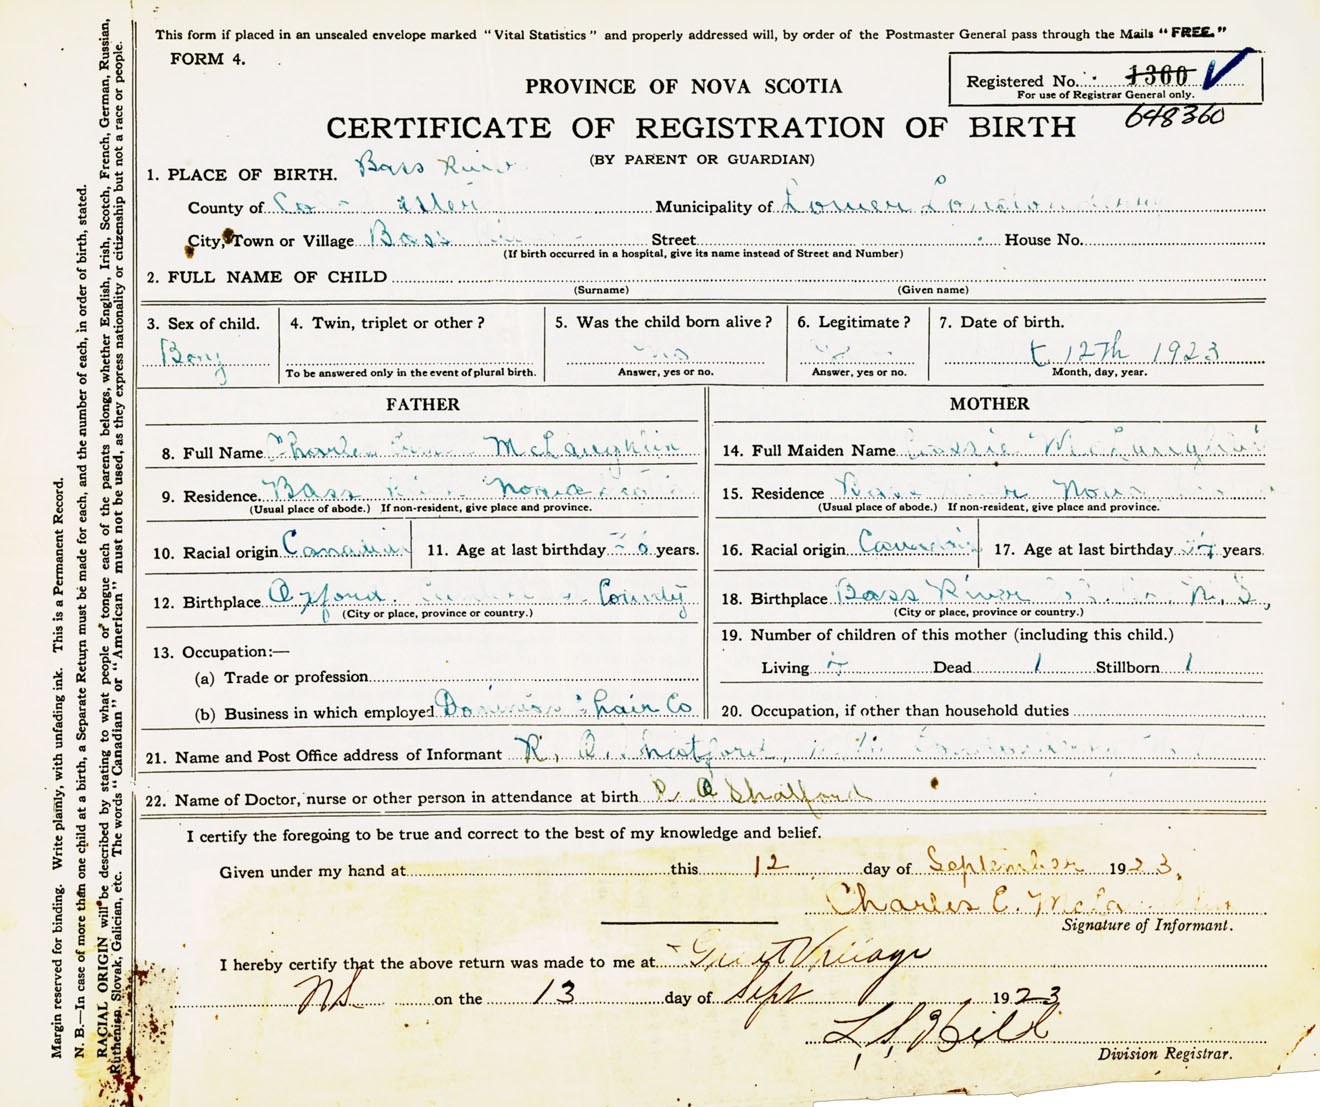 This form if placed in an unsealed envelope marked "Vital Statistics" and properly addressed will, by order of the Postmaster General pass through the Mails "FREE."
FORM 4.
Registered No. 1360
For use of Registrar General only.
648360
PROVINCE OF NOVA SCOTIA
CERTIFICATE OF REGISTRATION OF BIRTH
(BY PARENT OR GUARDIAN)
1. PLACE OF BIRTH. Bass River
County of Municipality of Lower
City, Town or Village Bass Street House No.
(If birth occurred in a hospital, give its name instead of Street and Number)
2. FULL NAME OF CHILD
(Surname) (Given name)
3. Sex of child. 4. Twin, triplet or other ? 5. Was the child born alive ? 6. Legitimate ? 7. Date of birth.
Boy 12th 1923
To be answered only in the event of plural birth. Answer, yes or no. Answer, yes or no. Month, day, year.
FATHER MOTHER
8. Full Name McLaughlin 14. Full Maiden Name McLaughlin
9. Residence Bass Nova 15. Residence Nova
(Usual place of abode.) If non-resident, give place and province. (Usual place of abode.) If non-resident, give place and province.
10. Racial origin Canadian 11. Age at last birthday years. 16. Racial origin 17. Age at last birthday years.
12. Birthplace Oxford County 18. Birthplace Bass River N. S,
(City or place, province or country.) (City or place, province or country.)
13. Occupation:— 19. Number of children of this mother (including this child.)
Living Dead 1 Stillborn 1
(a) Trade or profession
(b) Business in which employed Dominion Chair Co 20. Occupation, if other than household duties
21. Name and Post Office address of Informant R. A. Shatford,
22. Name of Doctor, nurse or other person in attendance at birth R. A Shatford
I certify the foregoing to be true and correct to the best of my knowledge and belief.
Given under my hand at this 12 day of September 1923.
Charles E.
Signature of Informant.
I hereby certify that the above return was made to me at Great Village
NS on the 13 day of Sept 1923
L. S. Hill
Division Registrar.
Margin reserved for binding. Write plainly, with unfading ink. This is a Permanent Record.
N. B.—In case of more than one child at a birth, a Separate Return must be made for each, and the number of each, in order of birth, stated.
RACIAL ORIGIN will be described by stating to what people or tongue each of the parents belongs, whether English, Irish, Scotch, French, German, Russian,
Ruthenian, Slovak, Galician, etc. The words "Canadian" or "American" must not be used, as they express nationality or citizenship but not a race or people.